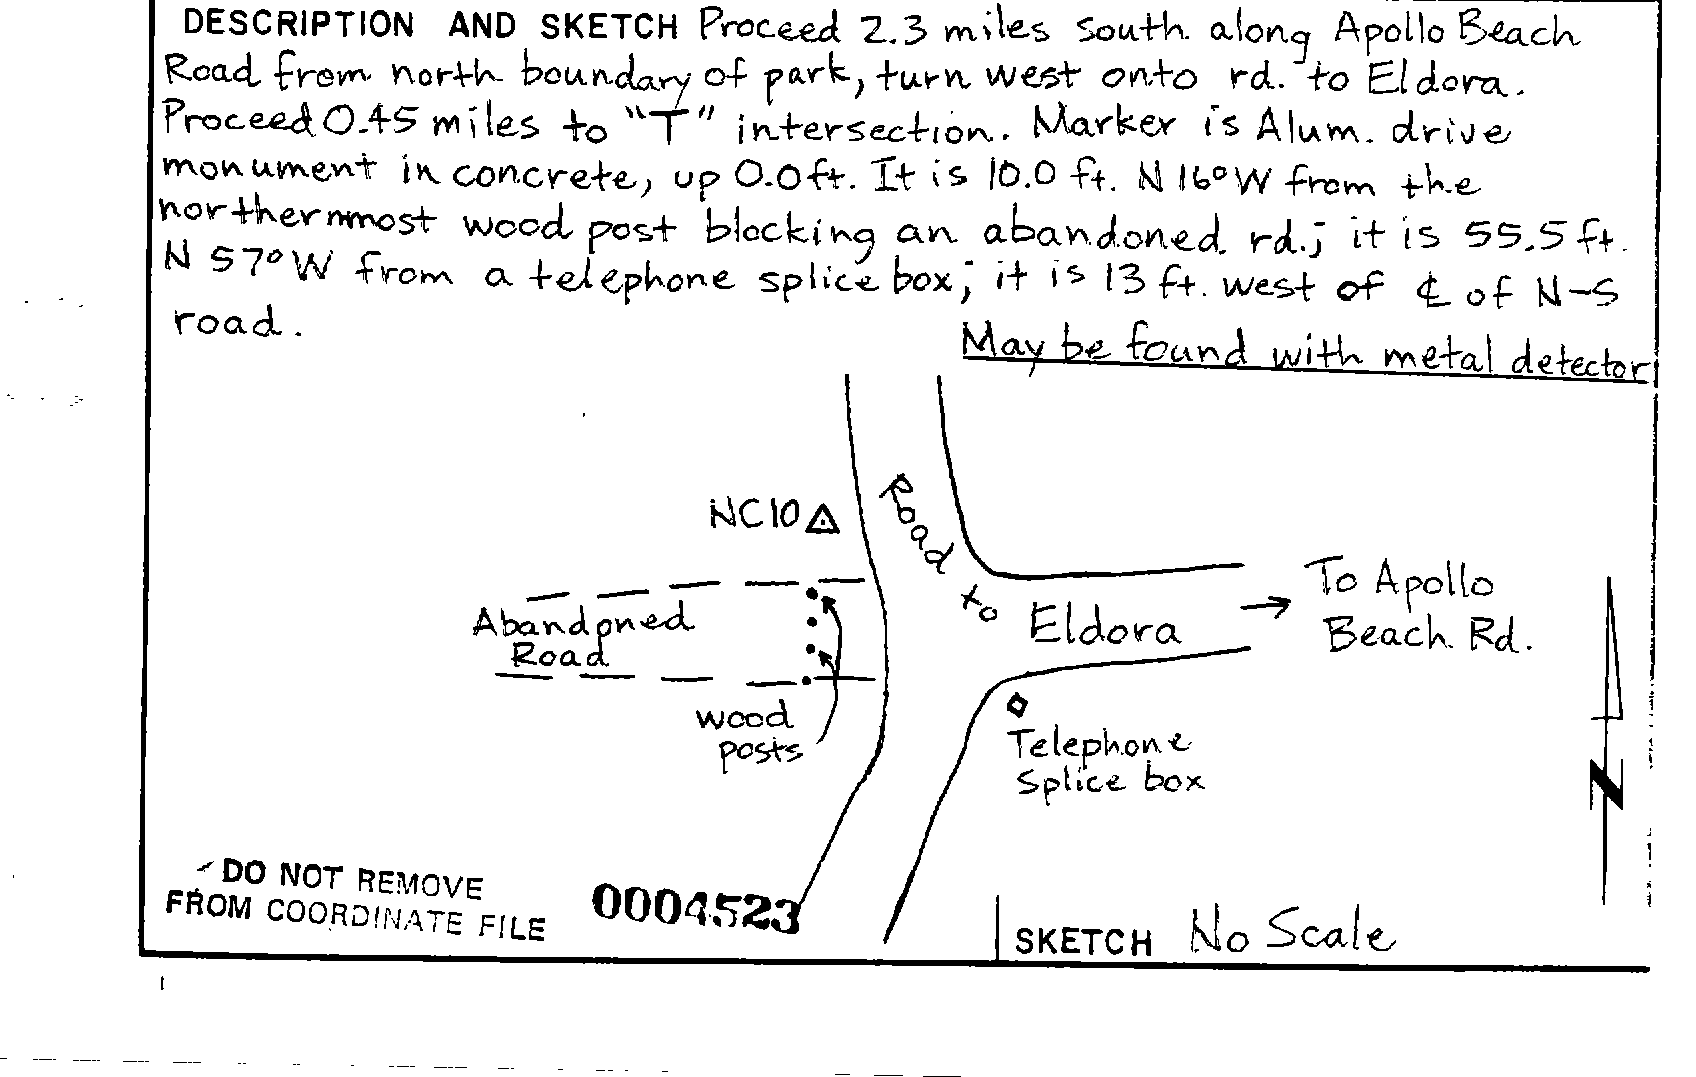 DESCRIPTION AND SKETCH Proceed 2.3 miles south along Apollo Beach
Road from north boundary of park, turn west onto rd. to Eldora.
Proceed 0.45 miles to "T" intersection. Marker is Alum. drive
monument in concrete, up 0.0ft. It is 10.0 ft. N 16° W from the
northernmost wood post blocking an abandoned rd.; it is 55.5 ft.
N 57° W from a telephone splice box; it is 13 ft. west of ℄ of N-S
road.
May be found with metal detector
NC10
Road to Eldora
To Apollo
Beach Rd.
Abandoned
Road
wood
posts
Telephone
Splice box
N
DO NOT REMOVE
FROM COORDINATE FILE
0004523
SKETCH No Scale